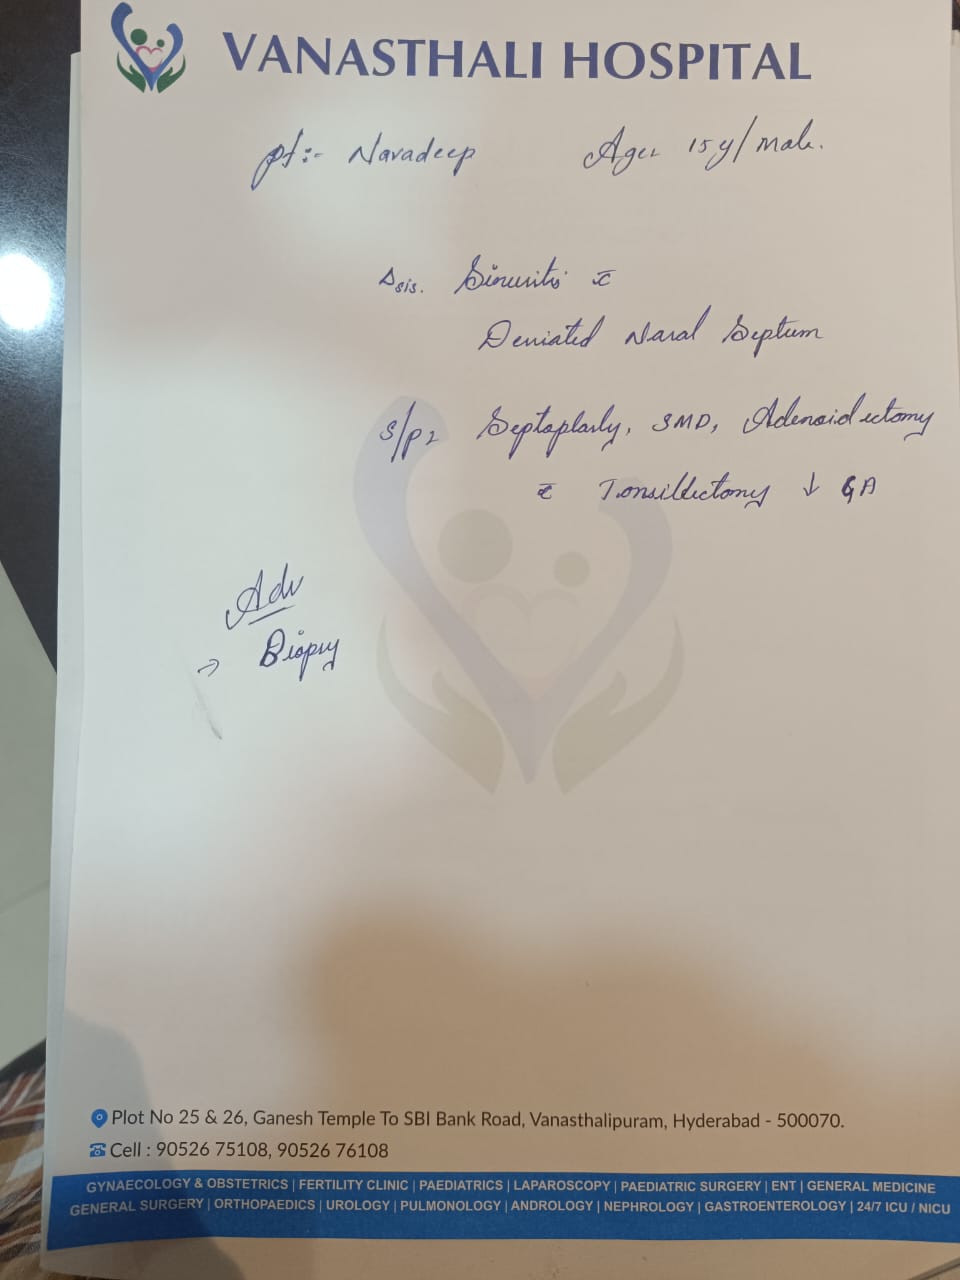 VANASTHALI HOSPITAL
pt:- Navadeep Age: 15y/male.
Dsis. Sinusitis c̄
Deviated Nasal Septum
s/p: Septoplasty, SMD, Adenoidectomy
c̄ Tonsillectomy ↓ GA
Adv
→ Biopsy
Plot No 25 & 26, Ganesh Temple To SBI Bank Road, Vanasthalipuram, Hyderabad - 500070.
Cell : 90526 75108, 90526 76108
GYNAECOLOGY & OBSTETRICS | FERTILITY CLINIC | PAEDIATRICS | LAPAROSCOPY | PAEDIATRIC SURGERY | ENT | GENERAL MEDICINE
GENERAL SURGERY | ORTHOPAEDICS | UROLOGY | PULMONOLOGY | ANDROLOGY | NEPHROLOGY | GASTROENTEROLOGY | 24/7 ICU / NICU